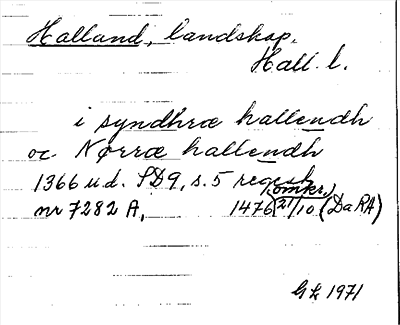 Halland, landskap.
Hall. l.
i syndhræ hallendh
oc Nørræ hallendh
1366 u.d. SD 9, s. 5 regest
(omkr.)
nr 7282 A. 1476 21/10 (DaRA)
G L 1971